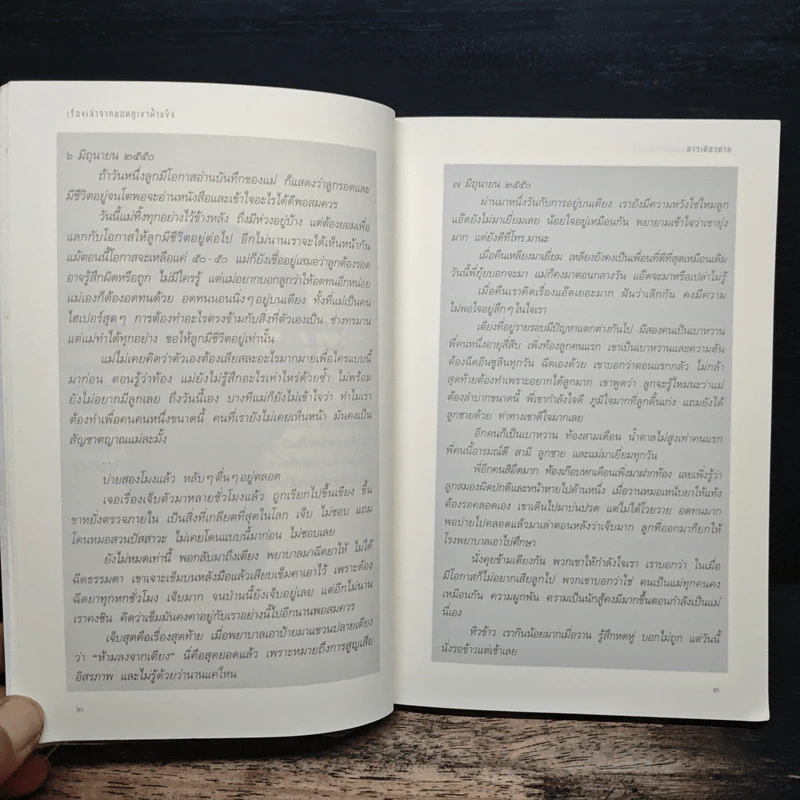 เรื่องเล่าจากยอดภูเขาน้ำแข็ง
๖ มิถุนายน ๒๕๕๐
ถ้าวันหนึ่งลูกมีโอกาสอ่านบันทึกของแม่ ก็แสดงว่าลูกรอดและ
มีชีวิตอยู่จนโตพอจะอ่านหนังสือและเข้าใจอะไรได้ดีพอสมควร
วันนี้แม่ทิ้งทุกอย่างไว้ข้างหลัง ถึงมีห่วงอยู่บ้าง แต่ต้องยอมเพื่อ
แลกกับโอกาสให้ลูกมีชีวิตอยู่ต่อไป อีกไม่นานเราจะได้เห็นหน้ากัน
แม้ตอนนี้โอกาสจะเหลือแค่ ๕๐-๕๐ แม่ก็ยังเชื่ออยู่เสมอว่าลูกต้องรอด
อาจรู้สึกผิดหรือถูก ไม่มีใครรู้ แต่แม่อยากบอกลูกว่าให้อดทนอีกหน่อย
แม่เองก็ต้องอดทนด้วย อดทนนอนนิ่งๆ อยู่บนเตียง ทั้งที่แม่เป็นคน
ไฮเปอร์สุดๆ การต้องทำอะไรตรงข้ามกับสิ่งที่ตัวเองเป็น ช่างทรมาน
แต่แม่ทำได้ทุกอย่าง ขอให้ลูกมีชีวิตอยู่เท่านั้น
แม่ไม่เคยคิดว่าตัวเองต้องเสียสละอะไรมากมายเพื่อใครแบบนี้
มาก่อน ตอนรู้ว่าท้อง แม่ยังไม่รู้สึกอะไรเท่าไหร่ด้วยซ้ำ ไม่พร้อม
ยังไม่อยากมีลูกเลย ถึงวันนี้เอง บางทีแม่ก็ไม่เข้าใจว่า ทำไมเรา
ต้องทำเพื่อคนคนหนึ่งขนาดนี้ คนที่เรายังไม่เคยเห็นหน้า มันคงเป็น
สัญชาตญาณแม่ละมั้ง
...
บ่ายสองโมงแล้ว หลับๆ ตื่นๆ อยู่ตลอด
เจอเรื่องเจ็บตัวมาหลายชั่วโมงแล้ว ถูกเรียกไปขึ้นเขียง ขึ้น
ขาหยั่งตรวจภายใน เป็นสิ่งที่เกลียดที่สุดในโลก เจ็บ ไม่ชอบ แถม
โดนหมอสวนปัสสาวะ ไม่เคยโดนแบบนี้มาก่อน ไม่ชอบเลย
ยังไม่หมดเท่านี้ พอกลับมาถึงเตียง พยาบาลมาฉีดยาให้ ไม่ได้
ฉีดธรรมดา เขาเจาะเข็มบนหลังมือแล้วเสียบเข็มคาเอาไว้ เพราะต้อง
ฉีดยาทุกหกชั่วโมง เจ็บมาก จนป่านนี้ยังเจ็บอยู่เลย แต่อีกไม่นาน
เราคงชิน คิดว่าเข็มมันคงคาอยู่กับเราอย่างนี้ไปอีกนานพอสมควร
เจ็บสุดคือเรื่องสุดท้าย เมื่อพยาบาลเอาป้ายมาแขวนปลายเตียง
ว่า “ห้ามลงจากเตียง” นี่คือสุดยอดแล้ว เพราะหมายถึงการสูญเสีย
อิสรภาพ และไม่รู้ด้วยว่านานแค่ไหน
๒
ดารเดียรดาย
๗ มิถุนายน ๒๕๕๐
ผ่านมาหนึ่งวันกับการอยู่บนเตียง เรายังมีความหวังใช่ไหมลูก
แอ๊ดยังไม่มาเยี่ยมเลย น้อยใจอยู่เหมือนกัน พยายามเข้าใจว่าเขายุ่ง
มาก แต่ยังดีที่โทร.มานะ
เมื่อคืนเหลียงมาเยี่ยม เหลียงยังคงเป็นเพื่อนที่ดีที่สุดเหมือนเดิม
วันนี้พี่ยุ้ยบอกจะมา แม่ก็คงมาตอนกลางวัน แอ๊ดจะมาหรือเปล่าไม่รู้
เมื่อคืนเราคิดเรื่องแอ๊ดเยอะมาก ฝันว่าเลิกกัน คงมีความ
ไม่พอใจอยู่ลึกๆ ในใจเรา
เตียงที่อยู่รายรอบมีปัญหาแตกต่างกันไป มีสองคนเป็นเบาหวาน
พี่คนหนึ่งอายุสี่สิบ เพิ่งท้องลูกคนแรก เขาเป็นเบาหวานและความดัน
ต้องฉีดอินซูลินทุกวัน ฉีดเองด้วย เขาบอกว่าตอนแรกกลัว ไม่กล้า
สุดท้ายต้องทำเพราะอยากได้ลูกมาก เขาพูดว่า ลูกจะรู้ไหมนะว่าแม่
ต้องลำบากขนาดนี้ พี่เขากำลังใจดี ภูมิใจมากที่ลูกดิ้นเก่ง แถมยังได้
ลูกชายด้วย ท่าทางเขาดีใจมากเลย
อีกคนก็เป็นเบาหวาน ท้องสามเดือน น้ำตาลไม่สูงเท่าคนแรก
พี่คนนี้อารมณ์ดี สามี ลูกชาย และแม่มาเยี่ยมทุกวัน
พี่อีกคนสิอึดมาก ท้องเกือบหกเดือนเพิ่งมาฝากท้อง เลยเพิ่งรู้ว่า
ลูกสมองผิดปกติและหน้าหายไปด้านหนึ่ง เมื่อวานหมอเหน็บยาให้แท้ง
ต้องรอคลอดเอง เขาเดินไปมาบ่นปวด แต่ไม่ได้โวยวาย อดทนมาก
พอบ่ายไปคลอดแล้วมาเล่าตอนหลังว่าเจ็บมาก ลูกที่ออกมาก็ยกให้
โรงพยาบาลเอาไปศึกษา
นั่งคุยข้ามเตียงกัน พวกเขาให้กำลังใจเรา เราบอกว่า ในเมื่อ
มีโอกาสก็ไม่อยากเสียลูกไป พวกเขาบอกว่าใช่ คนเป็นแม่ทุกคนคง
เหมือนกัน ความผูกพัน ความเป็นนักสู้คงมีมากขึ้นตอนกำลังเป็นแม่
นี่เอง
หิวข้าว เรากินน้อยมากเมื่อวาน รู้สึกหดหู่ บอกไม่ถูก แต่วันนี้
นั่งรอข้าวแต่เช้าเลย
๓